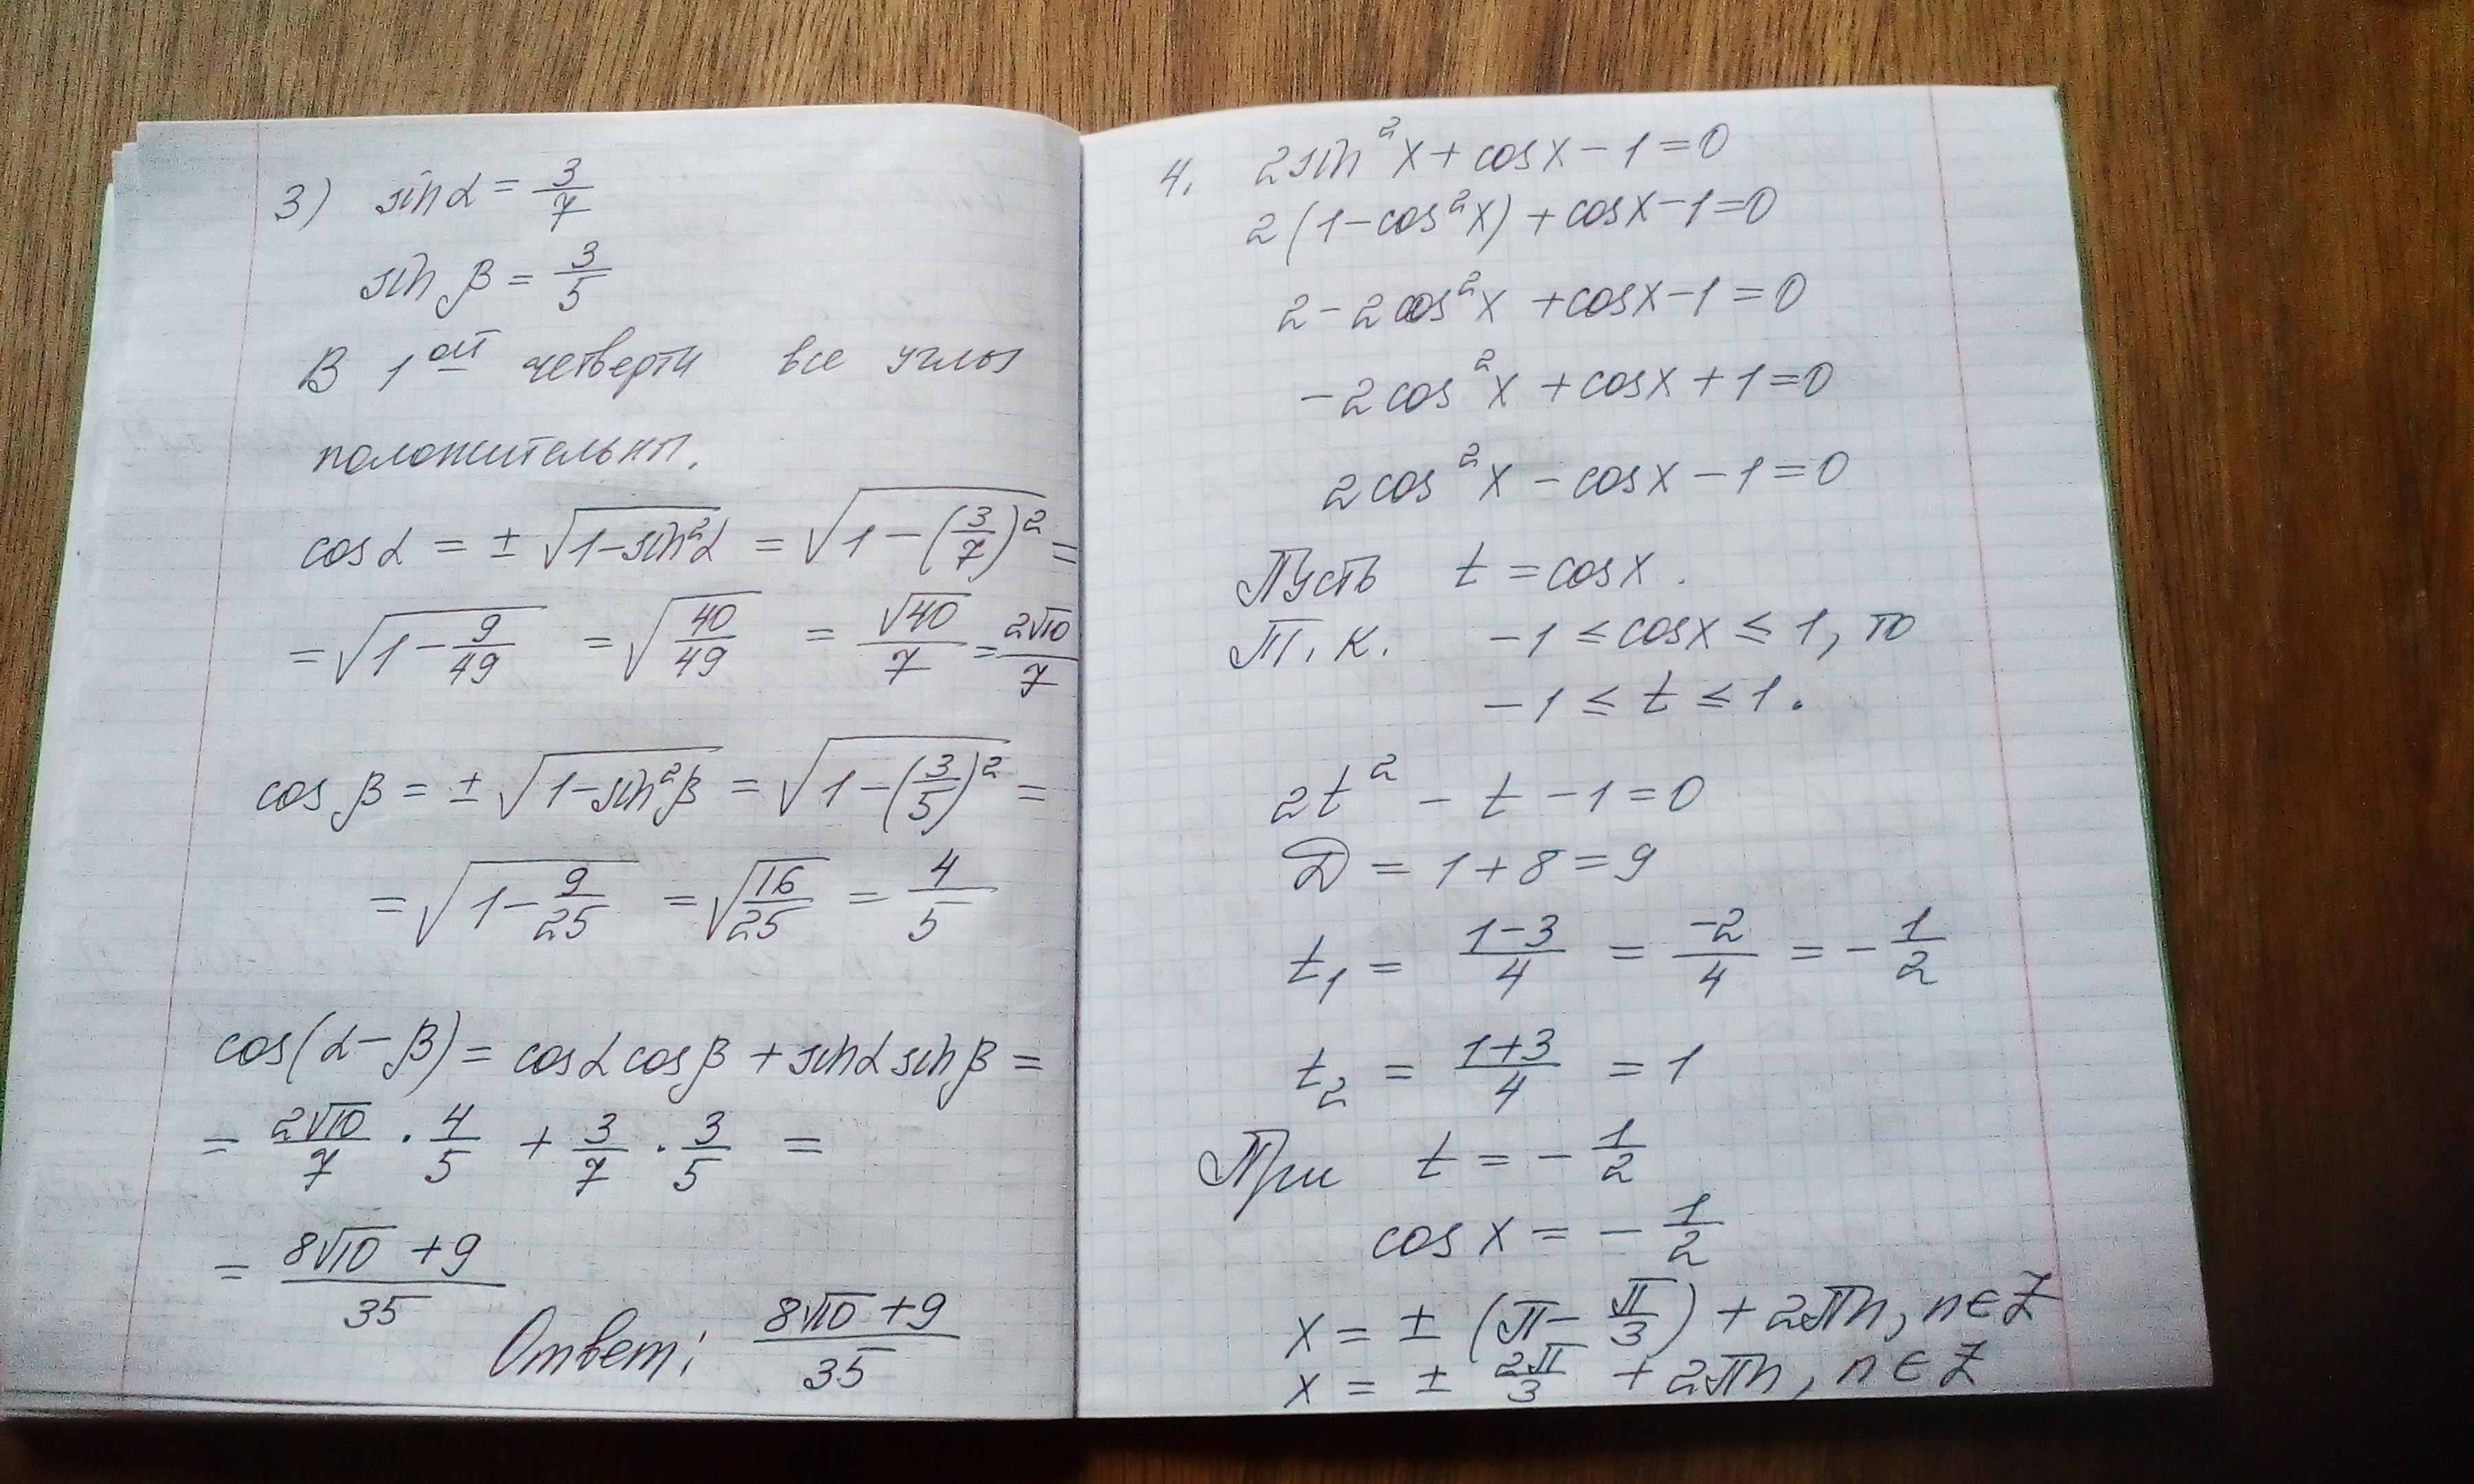 3) sin α = 3/7
sin β = 3/5
В 1ой четверти все углы
положительны.
cos α = ± √(1 - sin²α) = √(1 - (3/7)²) =
= √(1 - 9/49) = √(40/49) = √40/7 = 2√10/7
cos β = ± √(1 - sin²β) = √(1 - (3/5)²) =
= √(1 - 9/25) = √(16/25) = 4/5
cos(α - β) = cos α cos β + sin α sin β =
= 2√10/7 · 4/5 + 3/7 · 3/5 =
= (8√10 + 9)/35
Ответ: (8√10 + 9)/35
4. 2sin²x + cosx - 1 = 0
2(1 - cos²x) + cosx - 1 = 0
2 - 2cos²x + cosx - 1 = 0
-2cos²x + cosx + 1 = 0
2cos²x - cosx - 1 = 0
Пусть t = cosx.
Т.к. -1 ≤ cosx ≤ 1, то
-1 ≤ t ≤ 1.
2t² - t - 1 = 0
D = 1 + 8 = 9
t₁ = (1-3)/4 = -2/4 = -1/2
t₂ = (1+3)/4 = 1
При t = -1/2
cos x = -1/2
x = ± (π - π/3) + 2πn, n ∈ Z
x = ± 2π/3 + 2πn, n ∈ Z